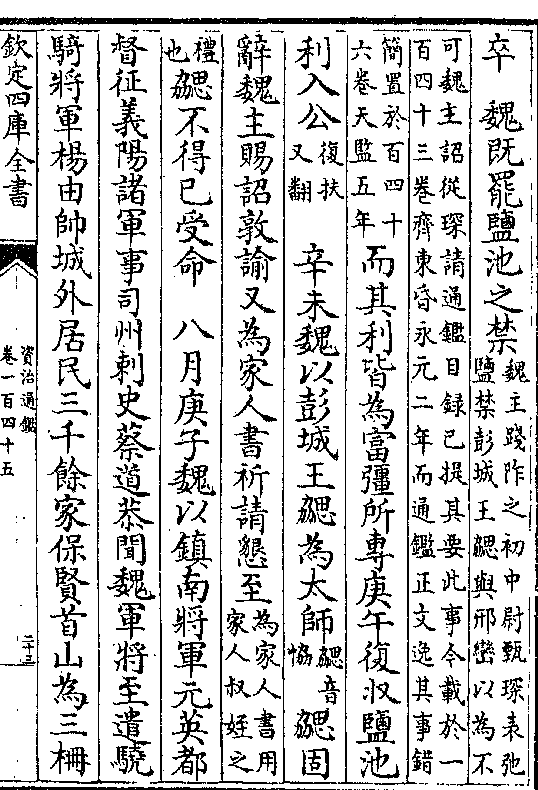 卒　魏既罷鹽池之禁
魏主踐阼之初中尉甄琛表弛
鹽禁彭城王勰與邢巒以為不
可魏主詔從琛請通鑑目録已提其要此事今載於一
百四十三卷齊東昏永元二年而通鑑正文逸其事錯
簡置於百四十
六卷天監五年
而其利皆為富彊所專庚午復収鹽池
利入公
復扶
又翻
辛未魏以彭城王勰為太師
勰音
協
勰固
辭魏主賜詔敦諭又為家人書祈請懇至
為家人書用
家人叔姪之
禮
也
勰不得已受命　八月庚子魏以鎮南將軍元英都
督征義陽諸軍事司州刺史蔡道恭聞魏軍將至遣驍
騎將軍楊由帥城外居民三千餘家保賢首山為三柵
欽定四庫全書
資治通鑑
卷一百四十五
二十三